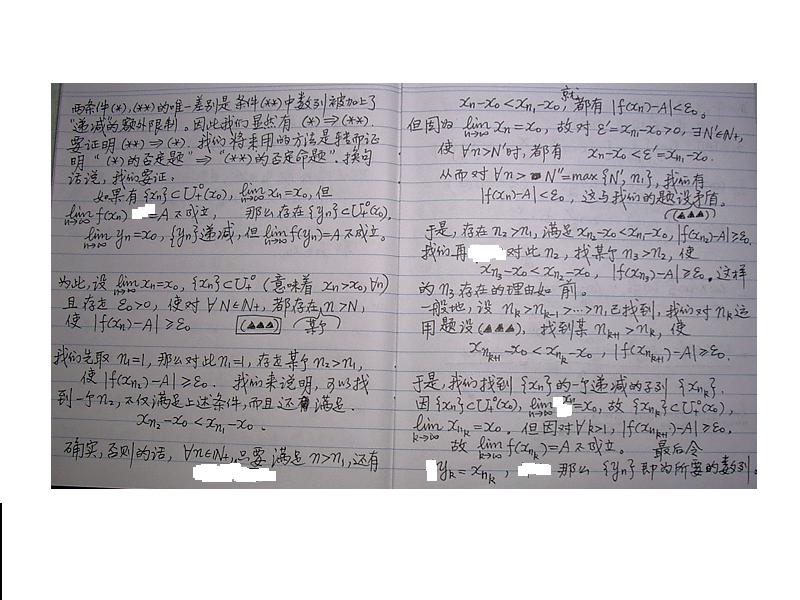 两条件(*),(**)的唯一差别是条件(**)中数列被加上了
"递减"的额外限制。因此我们显然有 (*)⇒(**).
要证明(**)⇒(*). 我们将采用的方法是转而证
明 "(*)的否定题"⇒"(**)的否定命题". 换句
话说,我们要证:
如果有{xn}⊂U₊°(x₀), lim n→∞ xn=x₀,但
lim n→∞ f(xn)=A不成立, 那么存在{yn}⊂U₊°(x₀),
lim n→∞ yn=x₀, {yn}递减,但 lim n→∞ f(yn)=A不成立。
为此,设 lim n→∞ xn=x₀, {xn}⊂U₊° (意味着 xn>x₀,∀n)
且存在 ε₀>0, 使对 ∀N∈N₊, 都存在 n>N,
使 |f(xn)-A|≥ε₀ (▲▲▲) 某个
我们先取 n₁=1, 那么对此n₁=1,存在某个n₂>n₁,
使 |f(xn₂)-A|≥ε₀. 我们来说明,可以找
到一个n₂,不仅满足上述条件,而且还满足.
xn₂-x₀<xn₁-x₀.
确实,否则的话, ∀n∈N₊,只要满足 n>n₁,还有
xn-x₀<xn₁-x₀,就都有 |f(xn)-A|<ε₀。
但因为 lim n→∞ xn=x₀, 故对 ε'=xn₁-x₀>0, ∃N'∈N₊,
使 ∀n>N'时, 都有 xn-x₀<ε'=xn₁-x₀.
从而对∀n> N''=max{N', n₁},我们有
|f(xn)-A|<ε₀, 这与我们的题设矛盾。
(▲▲▲)
于是,存在n₂>n₁,满足xn₂-x₀<xn₁-x₀,|f(xn₂)-A|≥ε₀
我们再 对此n₂, 找某个n₃>n₂, 使
xn₃-x₀<xn₂-x₀, |f(xn₃)-A|≥ε₀。这样
的n₃存在的理由如前。
一般地,设 nk>nk-1>…>n₁已找到,我们对nk运
用题设(▲▲▲), 找到某 nk+1>nk, 使
xnk+1-x₀<xnk-x₀, |f(xnk+1)-A|≥ε₀.
于是,我们找到{xn}的一个递减的子列{xnk}.
因{xn}⊂U₊°(x₀), lim n→∞ xn=x₀, 故{xnk}⊂U₊°(x₀),
lim k→∞ xnk=x₀. 但因对∀k>1, |f(xnk+1)-A|≥ε₀,
故 lim k→∞ f(xnk)=A不成立。 最后令
yk=xnk, 那么{yn}即为所要的数列.